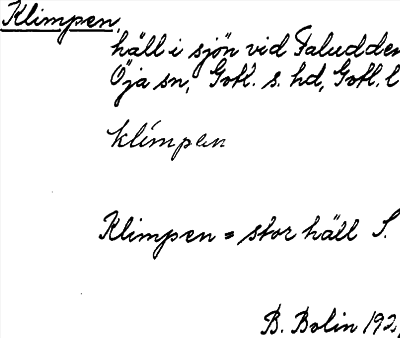 Klimpen,
häll i sjön vid Faludden
Öja sn, Gotl. s. hd, Gotl. l
klímpen
Klimpen = stor häll S.
B. Bolin 192